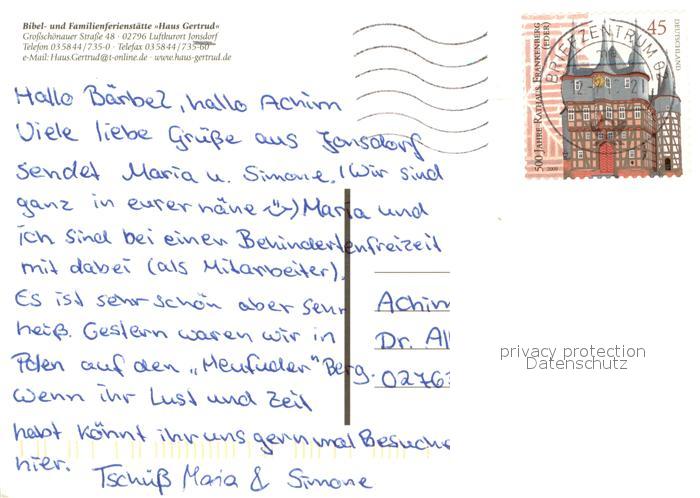 Bibel- und Familienferienstätte »Haus Gertrud«
Großschönauer Straße 48 · 02796 Luftkurort Jonsdorf
Telefon 035844/735-0 · Telefax 035844/735-60
e-Mail: Haus.Gertrud@t-online.de · www.haus-gertrud.de
Hallo Bärbel, hallo Achim
Viele liebe Grüße aus Jonsdorf
sendet Maria u. Simone. (Wir sind
ganz in eurer näne ) Maria und
ich sind bei einen Behindertenfreizeit
mit dabei (als Mitarbeiter).
Es ist sehr schön aber sehr
heiß. Gestern waren wir in
Polen auf den „Meufuder" Berg.
wenn ihr Lust und Zeit
habt könnt ihr uns gern mal Besuche
hier.
Tschüß Maria & Simone
Achim
Dr. Al
02763
500 JAHRE RATHAUS FRANKENBERG
(EDER)
2009
45
DEUTSCHLAND
BRIEFZENTRUM 02
privacy protection
Datenschutz